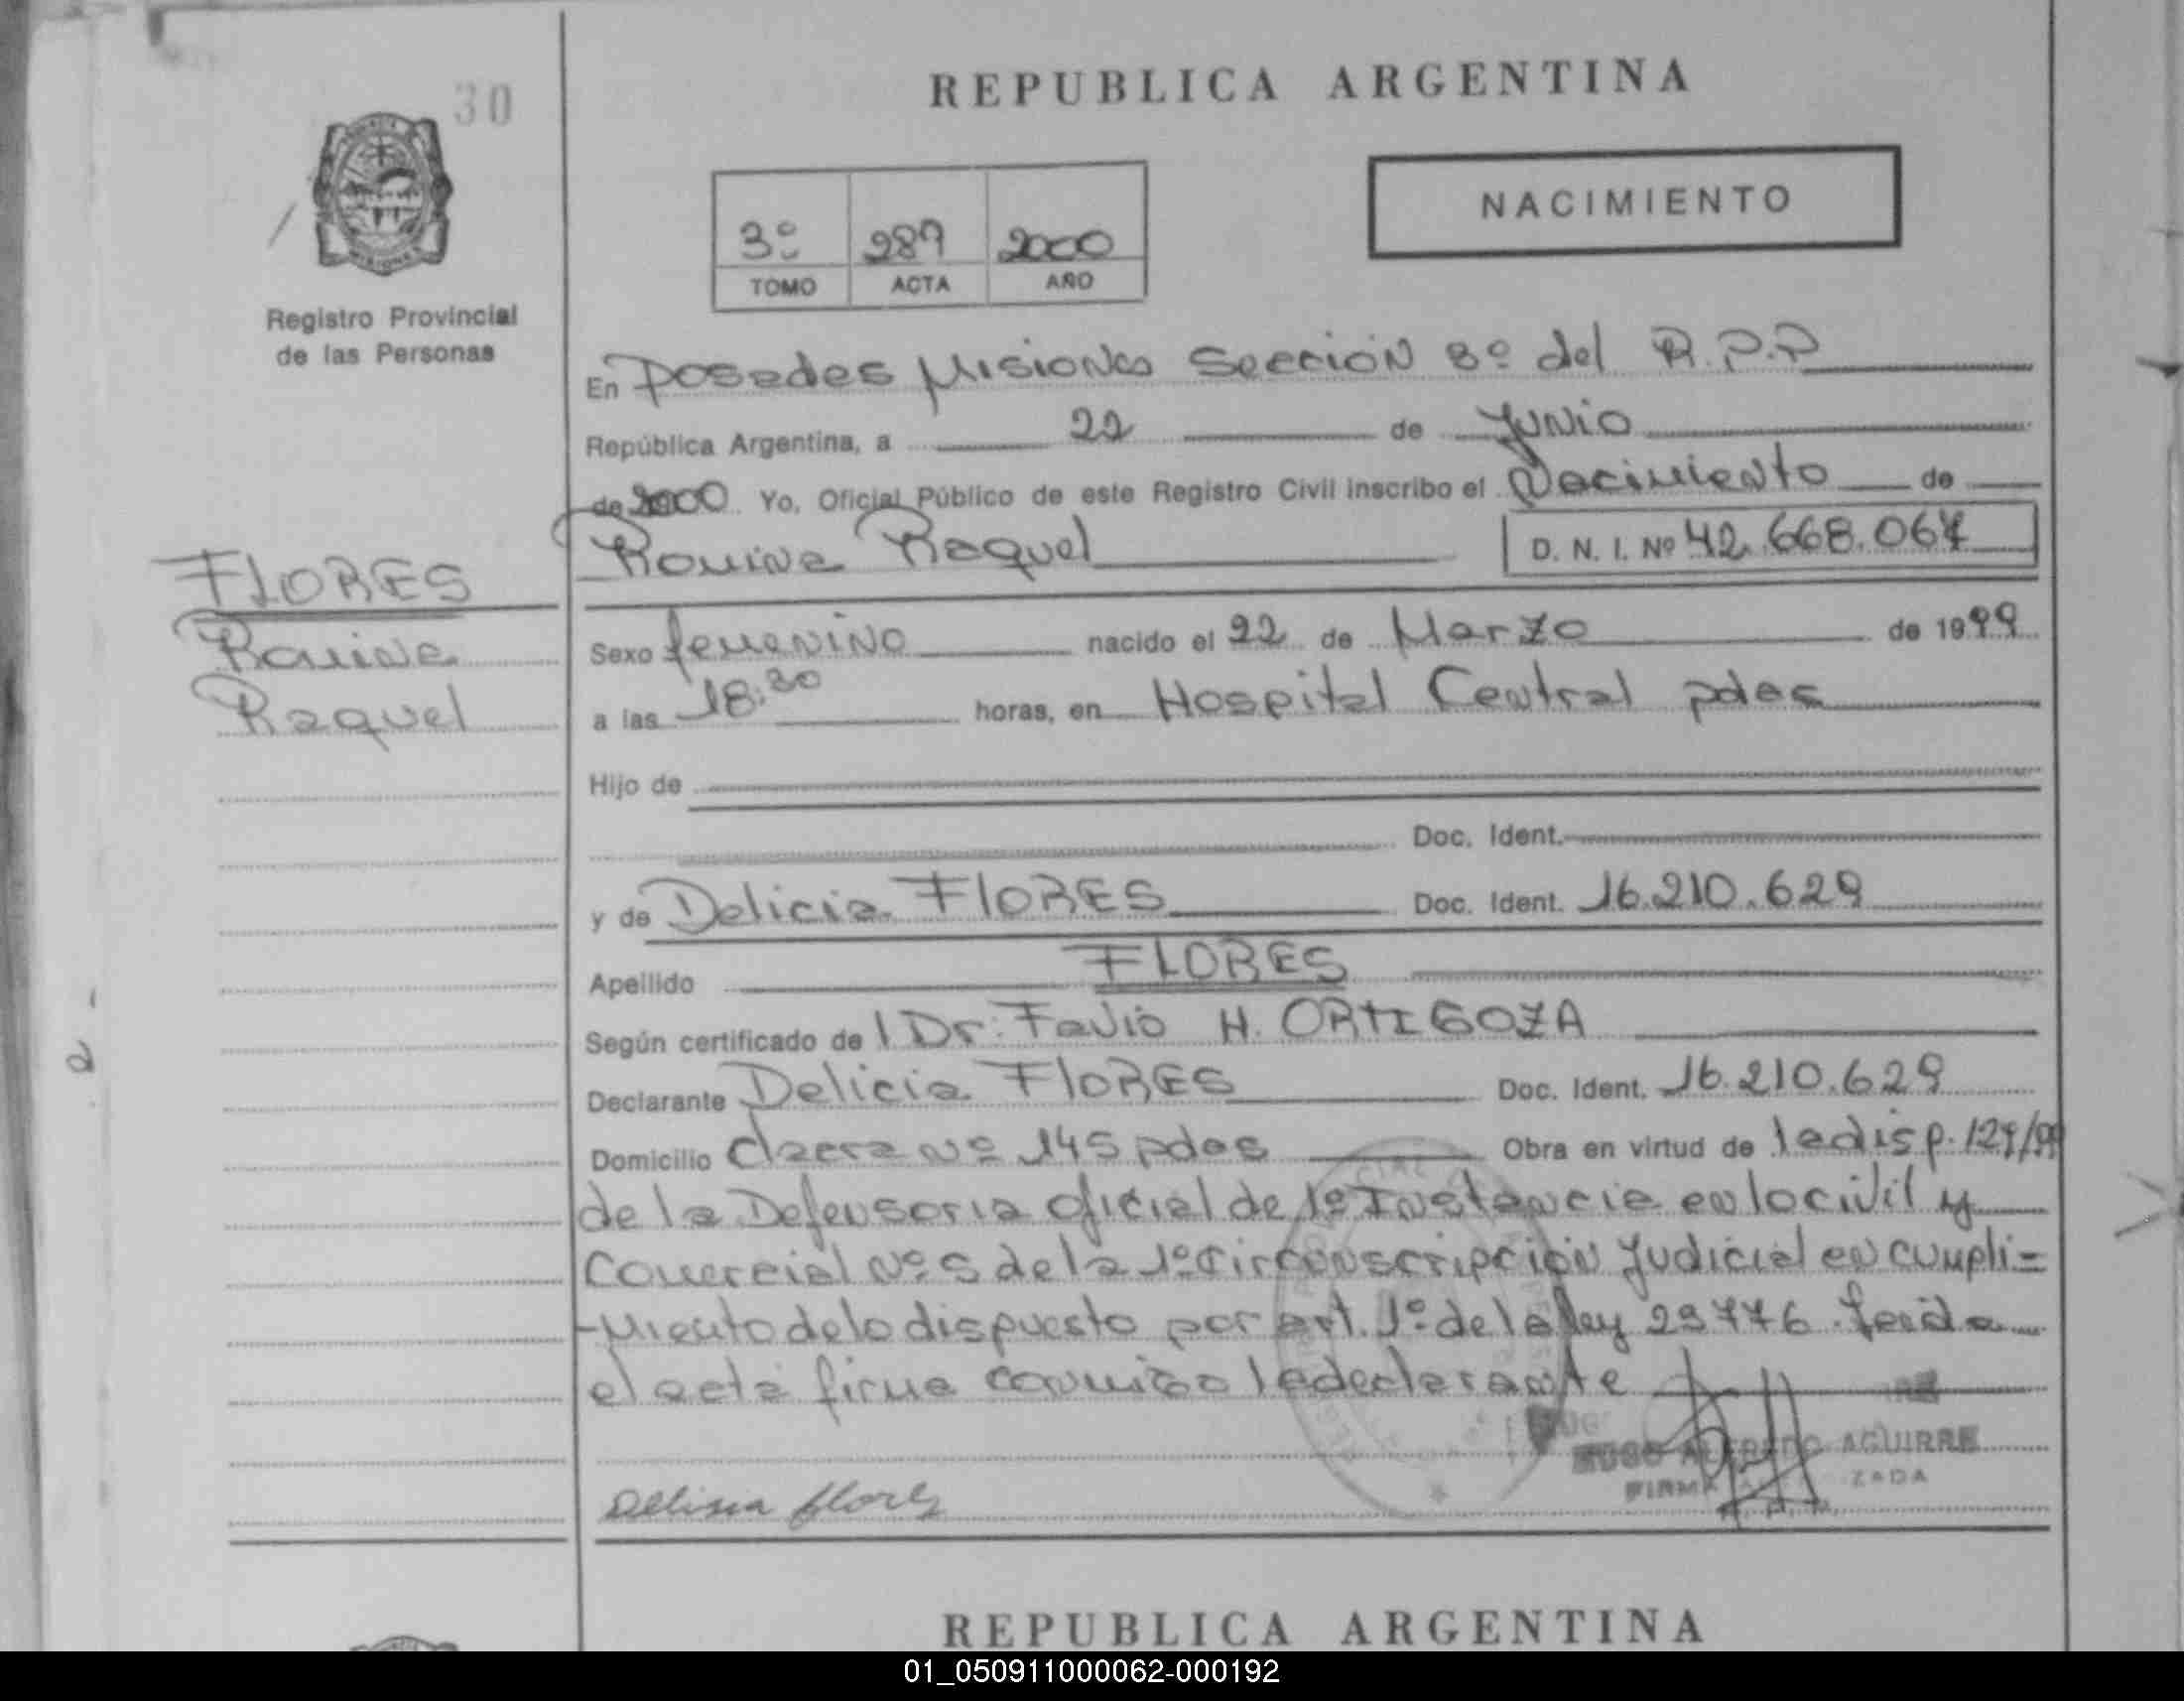 30
REPUBLICA ARGENTINA
NACIMIENTO
3º 289 2000
TOMO ACTA AÑO
Registro Provincial
de las Personas
En Posadas Misiones Sección 3º del R.P.P
República Argentina, a 22 de Junio
de 2000 Yo, Oficial Público de este Registro Civil inscribo el Nacimiento de
Romina Raquel D. N. I. Nº 42.668.067
FLORES
Romina
Raquel
Sexo femenino nacido el 22 de Marzo de 1999
a las 18:30 horas, en Hospital Central pdas
Hijo de
Doc. Ident.
y de Delicia FlORES Doc. Ident. 16.210.629
Apellido FLORES
Según certificado de l Dr: Favio H. ORTIGOZA
Declarante Delicia FlORES Doc. Ident. 16.210.629
Domicilio Chacra Nº 145 pdas Obra en virtud de la disp. 129/99
de la Defensoria oficial de 1º Instancia en lo civil y
Comercial Nº 5 de la 1º Circunscripción Judicial en cumpli=
-miento de lo dispuesto por art. 1º de la ley 23776. leida
el acta firma conmigo la declarante
HUGO ALFREDO AGUIRRE
FIRMA ZADA
Delisia flores
REPUBLICA ARGENTINA
01_050911000062-000192